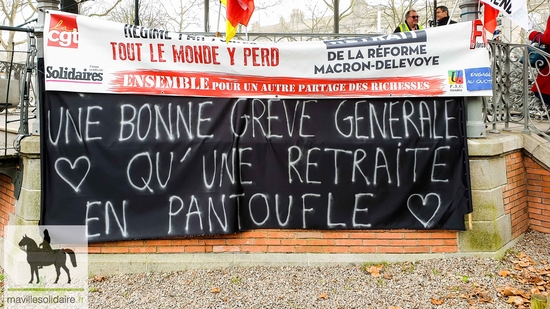 cgt
Solidaires
TOUT LE MONDE Y PERD
DE LA RÉFORME
MACRON-DELEVOYE
ENSEMBLE POUR UN AUTRE PARTAGE DES RICHESSES
UNE BONNE GRÈVE GENERALE
QU'UNE RETRAITE
EN PANTOUFLE
mavillesolidaire.fr